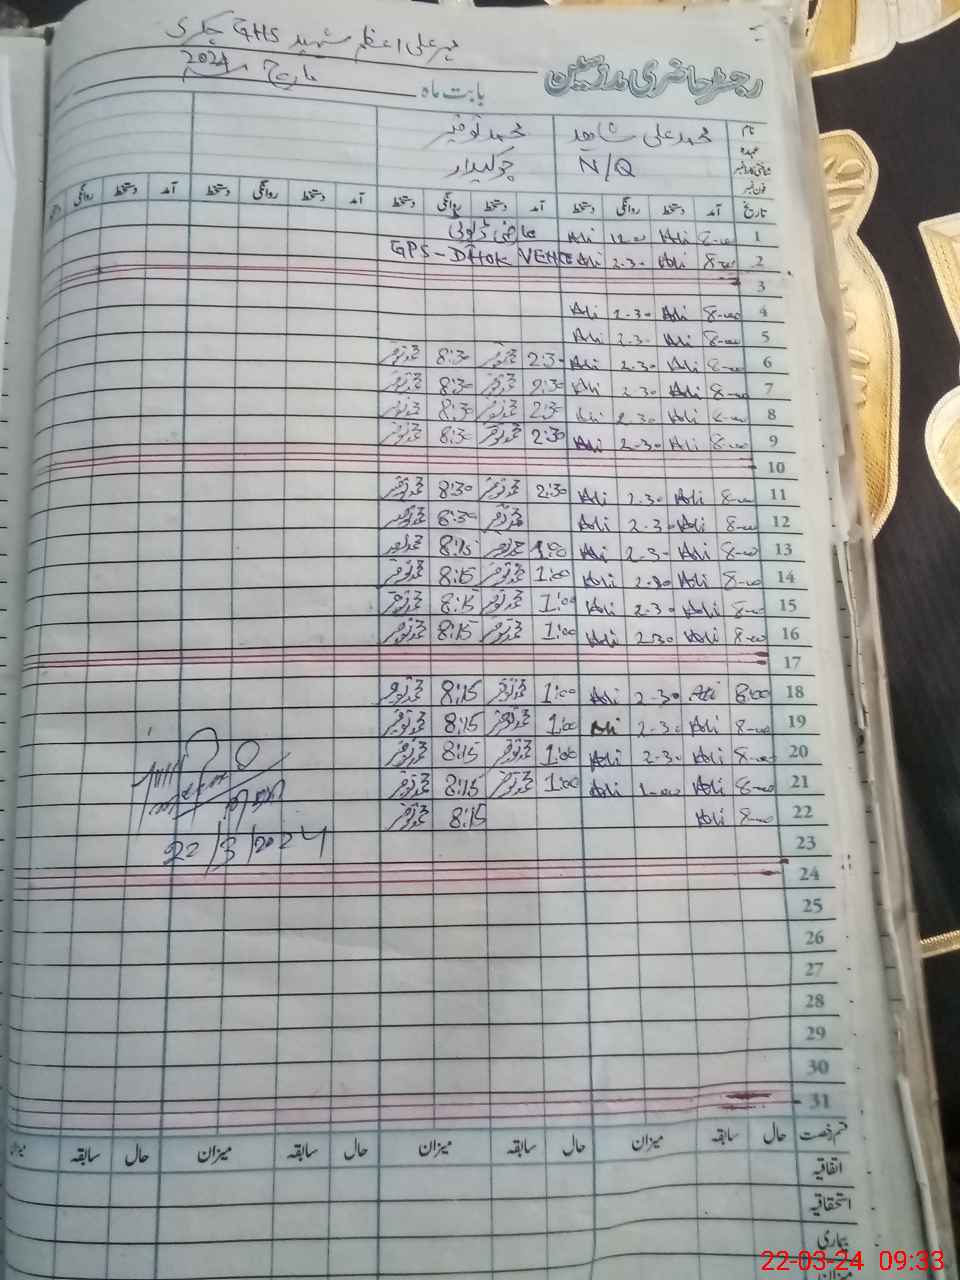 GHS
رجسٹر حاضری ملازمین
بابت ماہ مارچ 2024
نام محمد علی شاہد محمد توقیر
عہدہ N/Q چوکیدار
تاریخ آمد دستخط روانگی دستخط آمد دستخط روانگی دستخط آمد دستخط روانگی دستخط آمد دستخط روانگی
1 8-00 Ali 12-0 Ali
2 8-00 Ali 2-30 Ali GPS-DHOK
3
4 8-00 Ali 2-30 Ali
5 8-00 Ali 2-30 Ali
6 8-00 Ali 2-30 Ali 2:30 محمد توقیر 8:30 محمد توقیر
7 8-00 Ali 2-30 Ali 2:30 محمد توقیر 8:30 محمد توقیر
8 8-00 Ali 2-30 Ali 2:30 محمد توقیر 8:30 محمد توقیر
9 8-00 Ali 2-30 Ali 2:30 محمد توقیر 8:30 محمد توقیر
10
11 8-00 Ali 2-30 Ali 2:30 محمد توقیر 8:30 محمد توقیر
12 8-00 Ali 2-30 Ali محمد توقیر 8:30 محمد توقیر
13 8-00 Ali 2-30 Ali 1:00 محمد توقیر 8:15 محمد توقیر
14 8-00 Ali 2-30 Ali 1:00 محمد توقیر 8:15 محمد توقیر
15 8-00 Ali 2-30 Ali 1:00 محمد توقیر 8:15 محمد توقیر
16 8-00 Ali 2-30 Ali 1:00 محمد توقیر 8:15 محمد توقیر
17
18 8:00 Ali 2-30 Ali 1:00 محمد توقیر 8:15 محمد توقیر
19 8-00 Ali 2-30 Ali 1:00 محمد توقیر 8:15 محمد توقیر
20 8-00 Ali 2-30 Ali 1:00 محمد توقیر 8:15 محمد توقیر
21 8-00 Ali 1-00 Ali 1:00 محمد توقیر 8:15 محمد توقیر
22 8-00 Ali 8:15 محمد توقیر
23
22/3/2024
24
25
26
27
28
29
30
31
قسم رخصت حال سابقہ میزان حال سابقہ میزان حال سابقہ میزان حال سابقہ میزان
اتفاقیہ
استحقاقیہ
بیماری
میزان
22-03-24 09:33